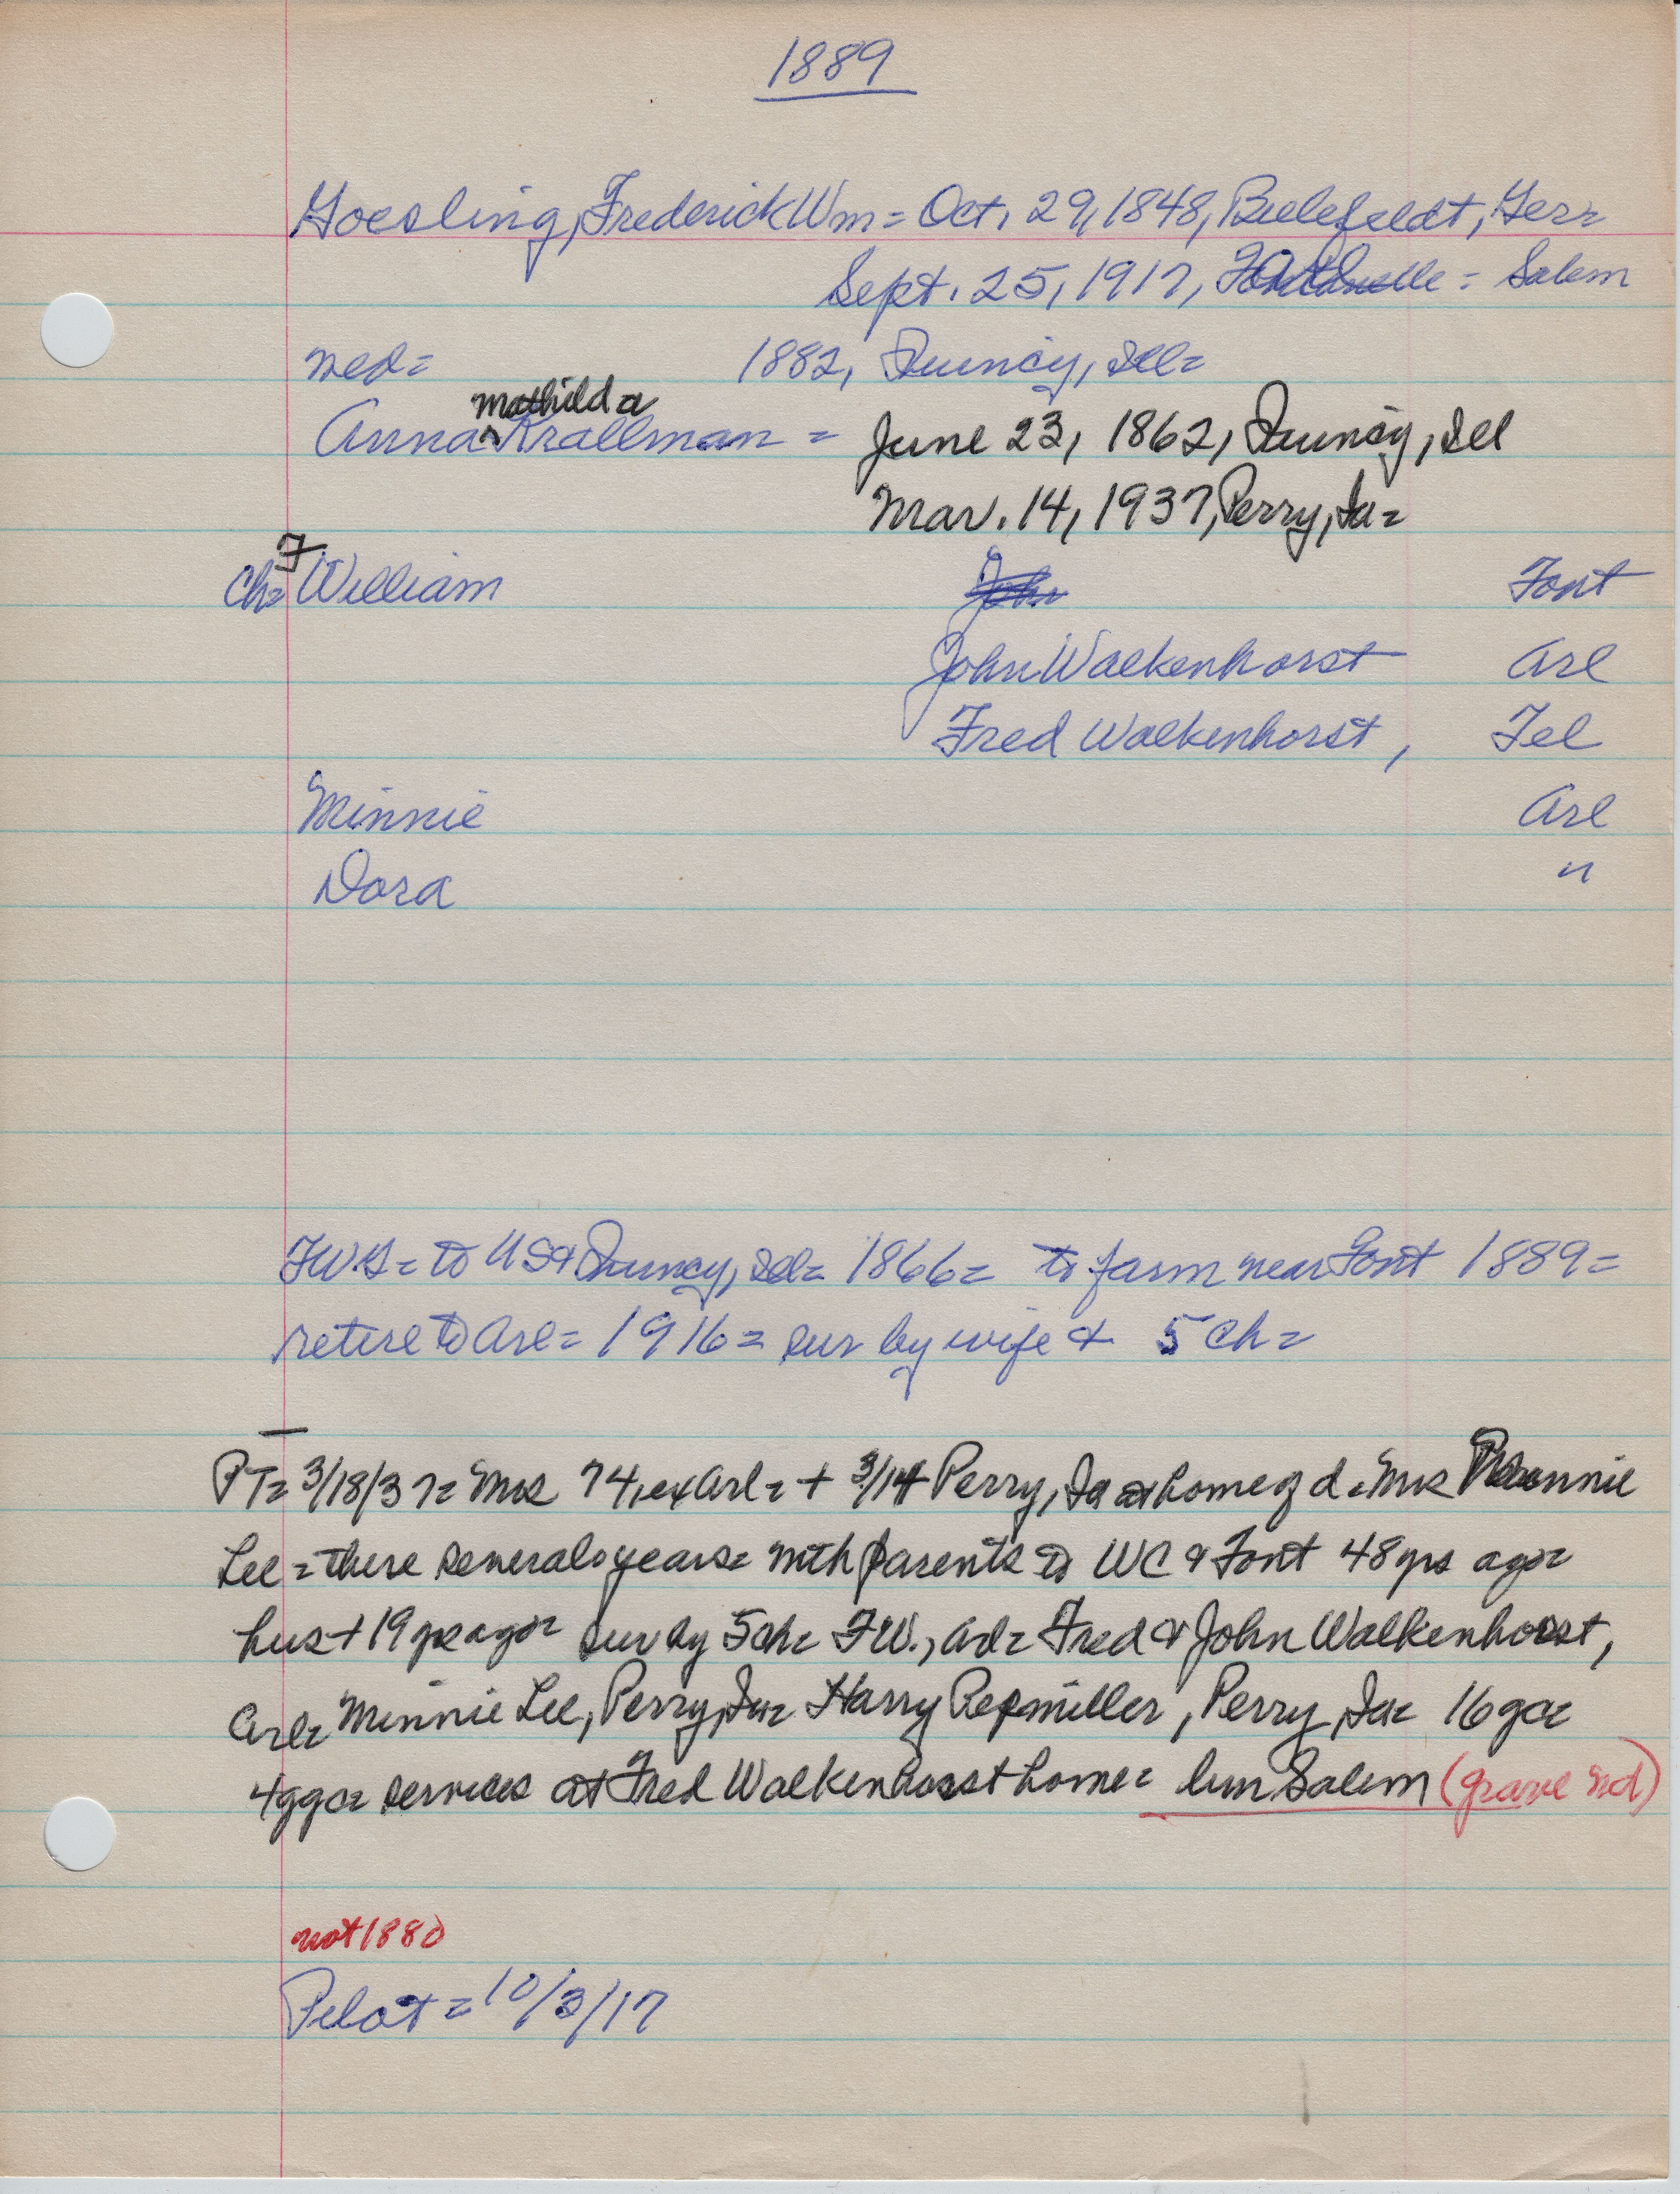 1889
Goesling, Frederick Wm = Oct. 29, 1848, Bielefeldt, Ger=
Sept. 25, 1917, = Salem
med= 1882, Quincy, Ill=
mathilda
Anna ^ Krallman = June 23, 1862, Quincy, Ill
Mar. 14, 1937, Perry, Ia=
F
Ch= William John Font
John Walkenhorst Arl
Fred Walkenhorst, Tel
Minnie Arl
Dora "
FWG= to US & Quincy, Ill= 1866= to farm near Font 1889=
retire to Arl= 1916= sur by wife & 5 ch=
PT= 3/18/37= Mrs 74, ex Arl= + 3/14 Perry, Ia at home of d= Mrs Minnie
Lee= there several years= with parents to WC & Font 48 yrs ago=
hus + 19 yrs ago= sur by 5 ch= F.W., Arl= Fred & John Walkenhorst,
Arl= Minnie Lee, Perry, Ia= Harry Repmiller, Perry, Ia= 16 gc=
4 ggc= services at Fred Walkenhorst home= bur Salem (grave md)
not 1880
Pilot= 10/3/17